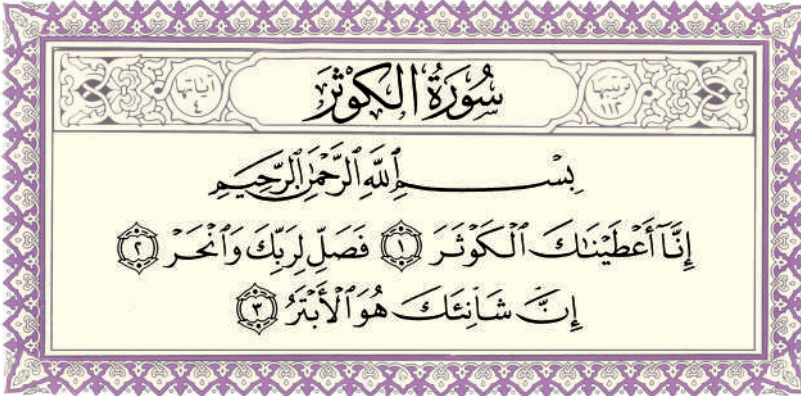 ترتيبها ١١٢ سُورَةُ الكَوْثَرَ آياتها ٤
بِسْمِ ٱللَّهِ ٱلرَّحْمَٰنِ ٱلرَّحِيمِ
إِنَّآ أَعْطَيْنَٰكَ ٱلْكَوْثَرَ ١ فَصَلِّ لِرَبِّكَ وَٱنْحَرْ ٢
إِنَّ شَانِئَكَ هُوَ ٱلْأَبْتَرُ ٣